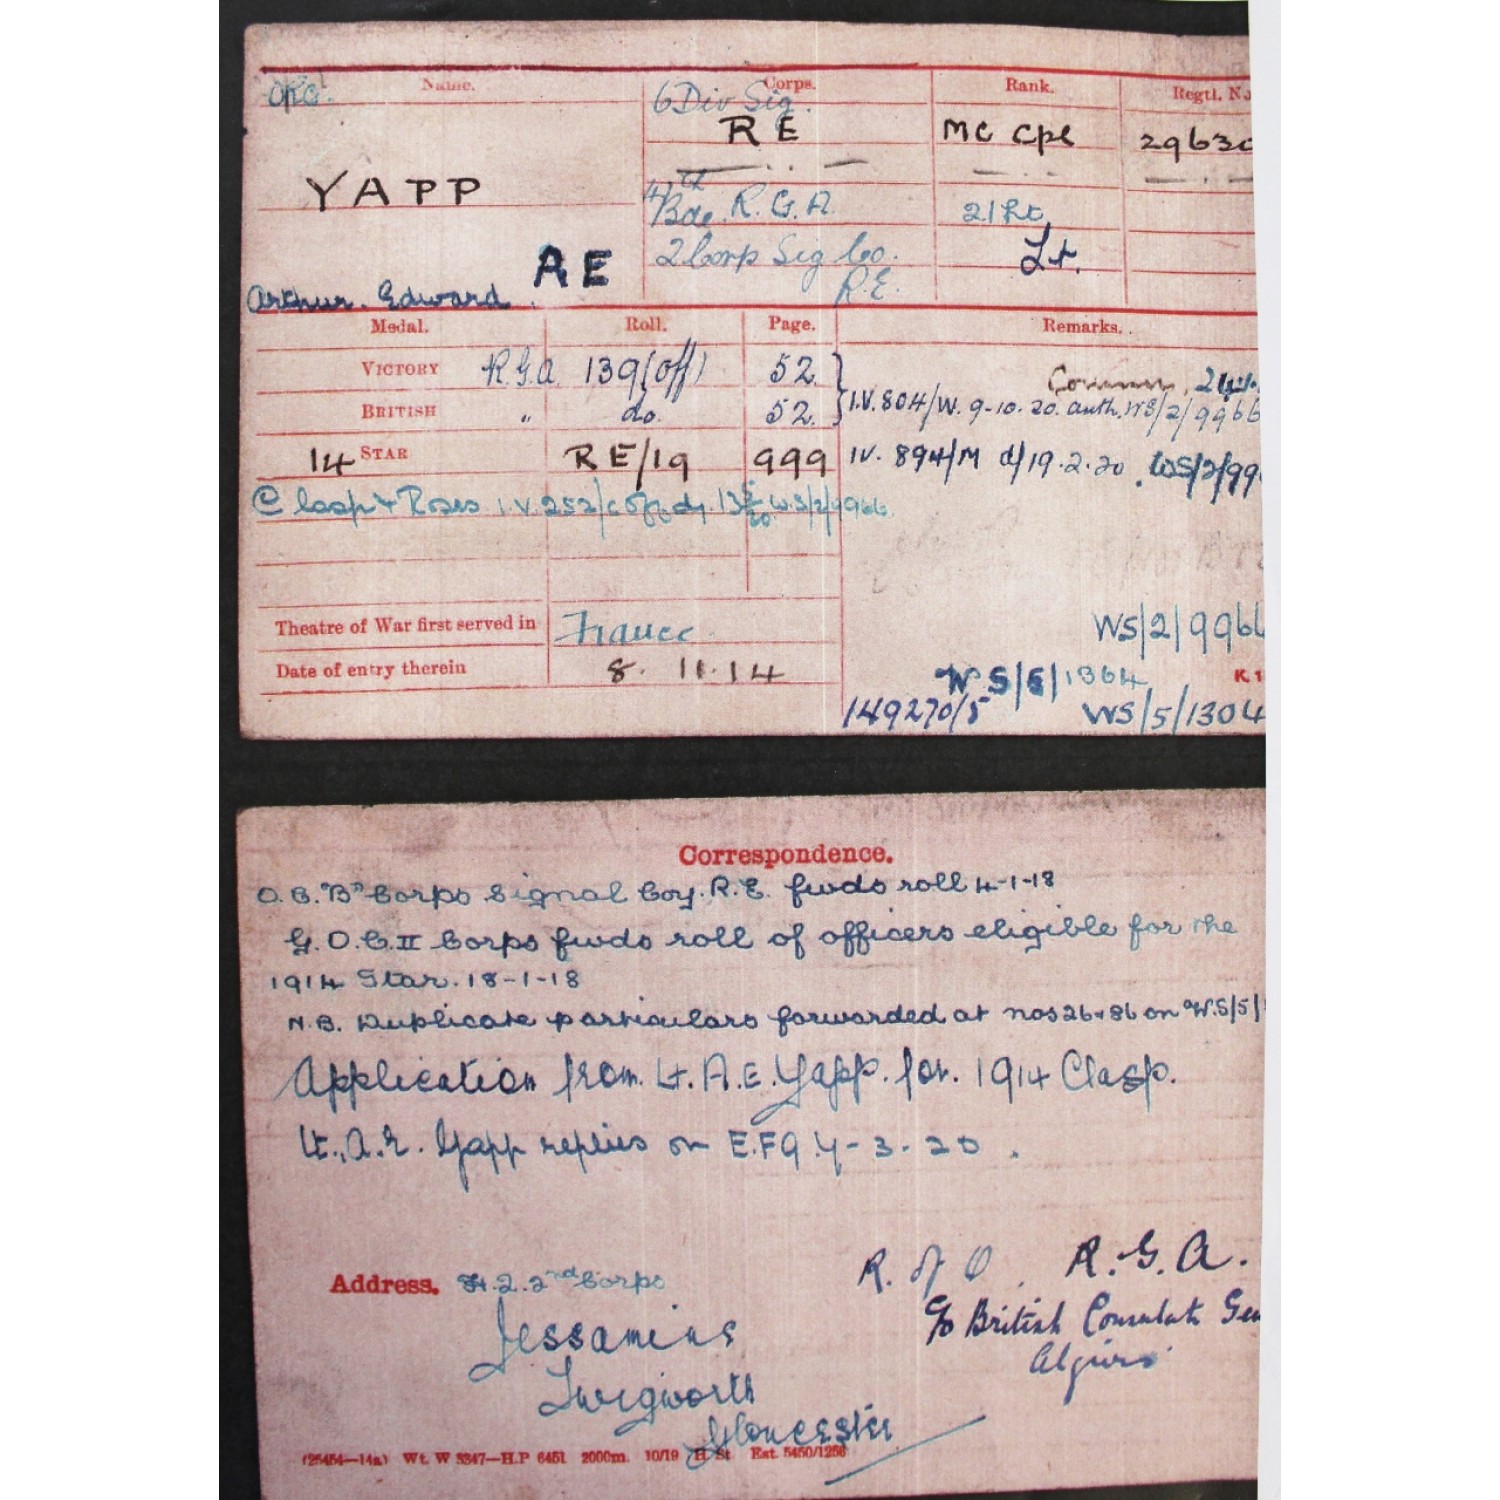 Name. Corps. Rank. Regtl. No
6 Div Sig.
RE MC Cpl 29630
YAPP
Bde. R.G.A. 2/Lt
AE 2 Corp Sig Co. Lt.
Arthur. Edward. R.E.
Medal. Roll. Page. Remarks.
VICTORY R.G.A 139(Off) 52.
BRITISH " do. 52. I.V.804/W. 9-10-20. auth. WS/2/9966
14 STAR RE/19 999 IV. 894/M d/19.2.20. WS/2/99
Clasp & Roses I.V. 252/C W.S/2/9966.
Theatre of War first served in France
Date of entry therein 8. 11.14
WS/2/9966
W.S/5/1304 K. 1
149270/5 WS/5/1304
Correspondence.
O.C. "B" Corps Signal Coy. R.E. fwds roll 4-1-18
G.O.C. II Corps fwds roll of officers eligible for the
1914 Star. 18-1-18
N.B. Duplicate particulars forwarded at nos 26 & 86 on W.S/5/
Application from Lt. A.E. Yapp. for. 1914 Clasp.
Lt. A.E. Yapp replies on E.F.9. 4-3-20.
R. of O. R.G.A.
Address. H.Q. 2nd Corps
c/o British Consulate Gen
Jessamine
Algiers
Twigworth
Gloucester
(25454—14a) Wt. W 5347—H.P 6451 2000m. 10/19 H St Est. 5450/1256